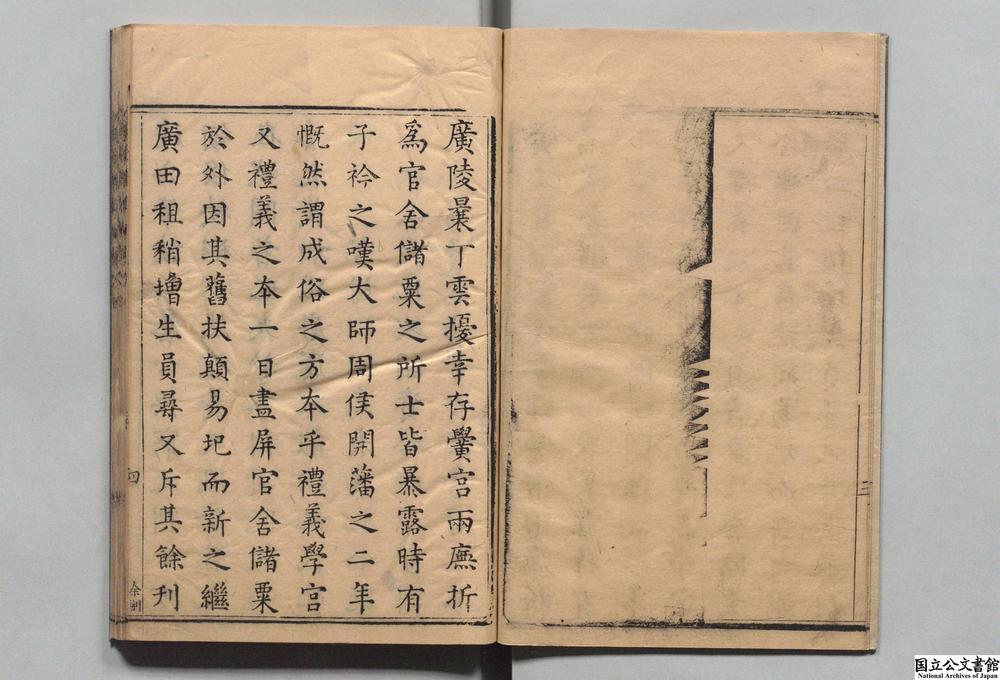 三
廣陵曩丁雲擾幸存黌宮兩廡折
爲官舍儲粟之所士皆暴露時有
子衿之嘆大師周侯開藩之二年
慨然謂成俗之方本乎禮義學宮
又禮義之本一日盡屏官舍儲粟
於外因其舊扶顛易圮而新之繼
廣田租稍增生員尋又斥其餘刋
四
国立公文書館
National Archives of Japan